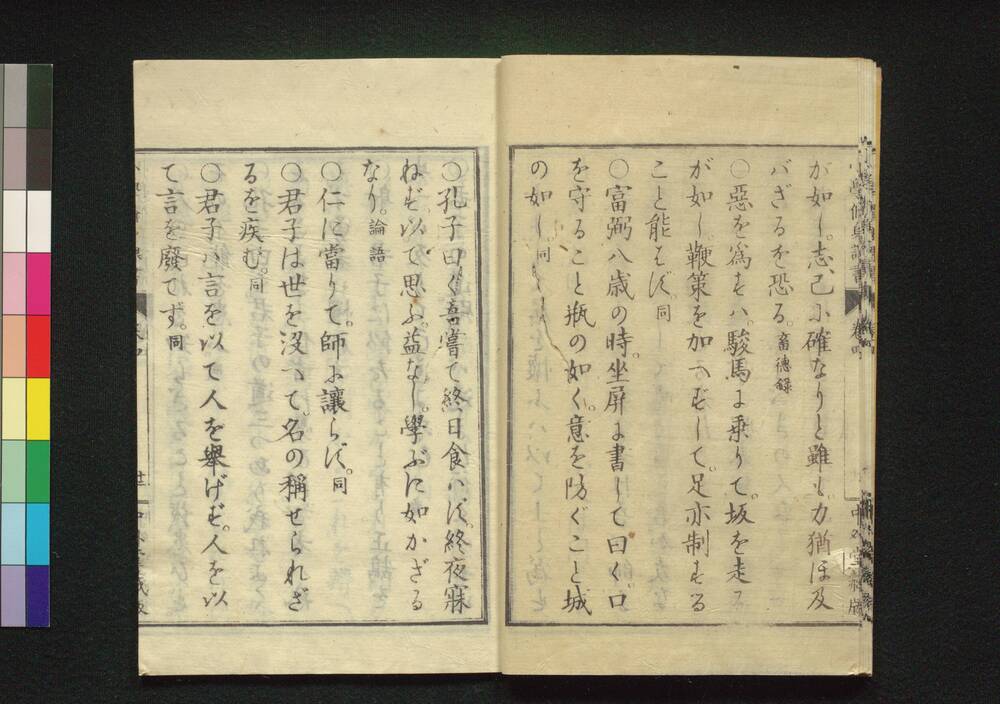 が如し。志己に確なりと雖も。力猶ほ及
バざるを恐る。畜德錄
〇惡を爲すハ。駿馬に乘りて。坂を走る
が如し。鞭策を加へずして。足亦制する
こと能はず。同
〇富弼八歳の時。坐屏に書して曰く。口
を守ること瓶の如く。意を防ぐこと城
の如し。同
〇孔子曰く。吾嘗て終日食ハず。終夜寐
ねず。以て思ふ。益なし。學ぶに如かざる
なり。論語
〇仁に當りて。師に讓らず。同
〇君子は世を沒へて。名の稱せられざ
るを疾む。同
〇君子ハ言を以て人を擧げず。人を以
て言を廢てず。同